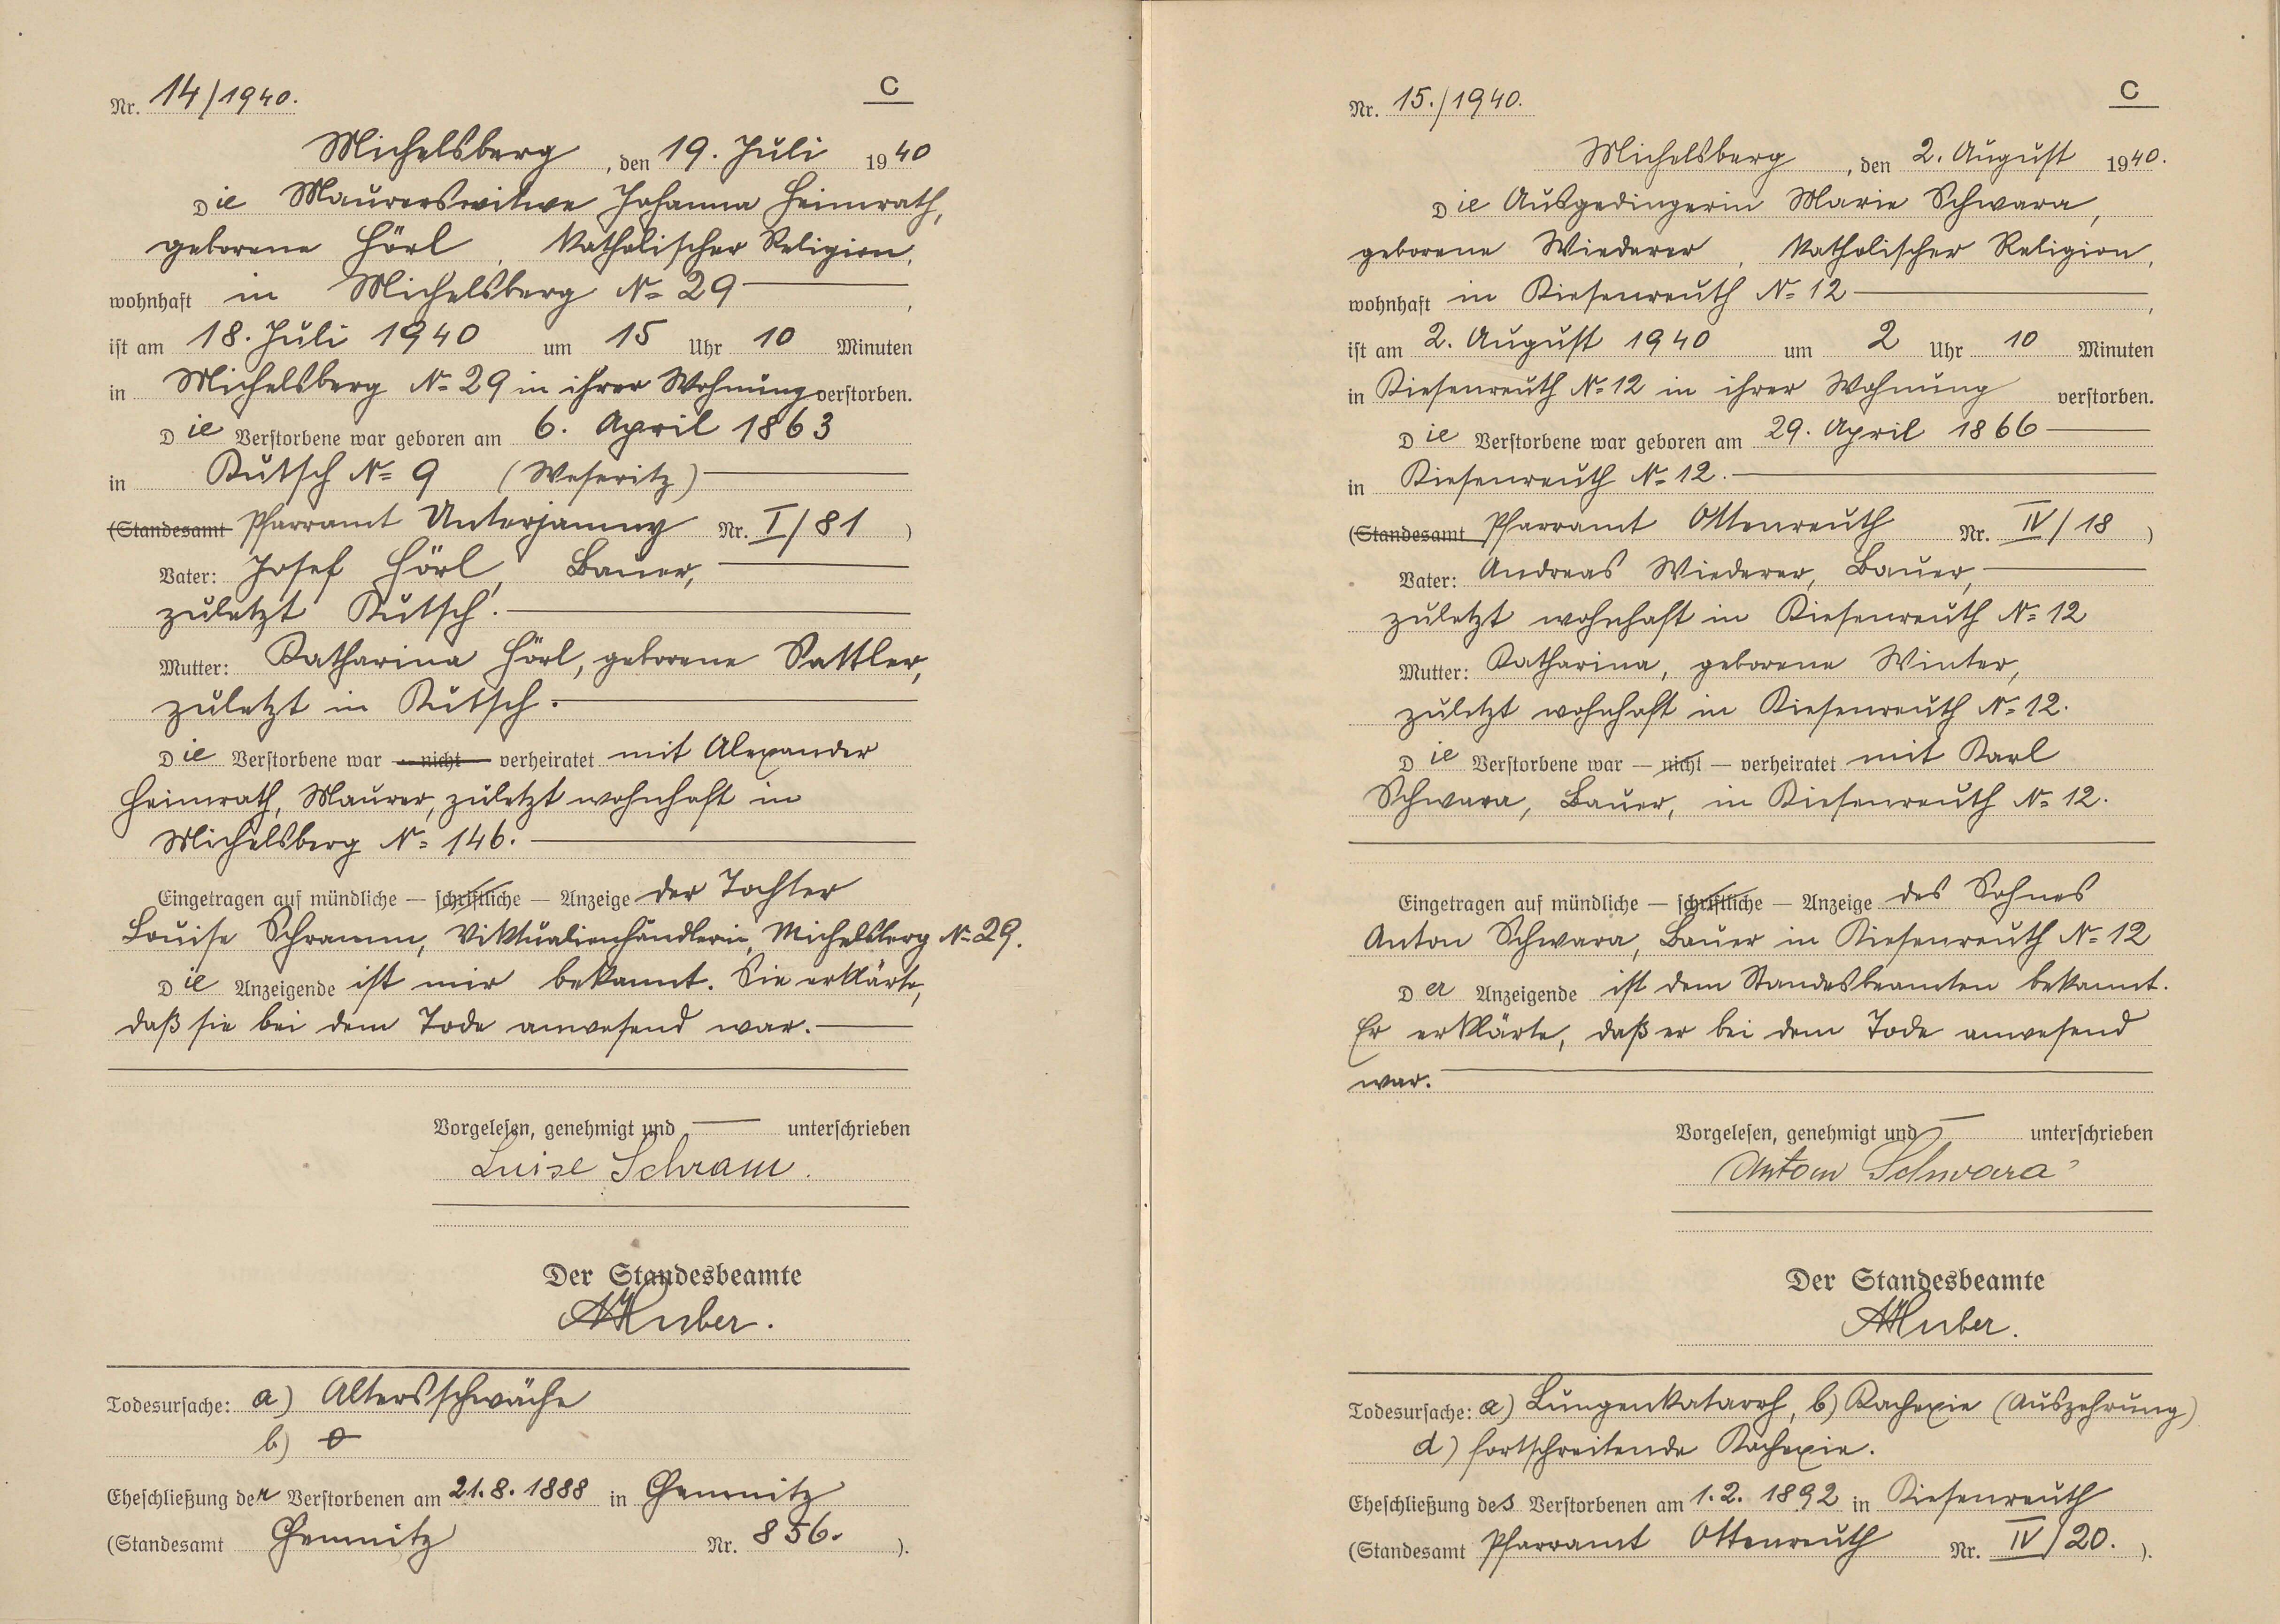 Nr. 14/1940.
C
Michelsberg, den 19. Juli 1940
Die Maurerswitwe Johanna Heimrath,
geborene Hörl, katholischer Religion,
wohnhaft in Michelsberg No 29,
ist am 18. Juli 1940 um 15 Uhr 10 Minuten
in Michelsberg No 29 in ihrer Wohnung verstorben.
Die Verstorbene war geboren am 6. April 1863
in Kutsch No 9 (Weseritz)
(Standesamt Pfarramt Unterjamny Nr. I/81)
Vater: Josef Hörl, Bauer,
zuletzt Kutsch.
Mutter: Katharina Hörl, geborene Sattler,
zuletzt in Kutsch.
Die Verstorbene war – nicht – verheiratet mit Alexander
Heimrath, Maurer, zuletzt wohnhaft in
Michelsberg No 146.
Eingetragen auf mündliche — schriftliche — Anzeige der Tochter
Louise Schramm, Viktualienhändlerin, Michelsberg No 29.
Die Anzeigende ist mir bekannt. Sie erklärte,
daß sie bei dem Tode anwesend war.
Vorgelesen, genehmigt und — unterschrieben
Luise Schram.
Der Standesbeamte
AHuber.
Todesursache: a) Altersschwäche
b) 0
Eheschließung der Verstorbenen am 21.8.1888 in Chemnitz
(Standesamt Chemnitz Nr. 856.).
Nr. 15./1940.
C
Michelsberg, den 2. August 1940.
Die Ausgedingerin Marie Schwara,
geborene Wiederer, katholischer Religion,
wohnhaft in Kiesenreuth No 12,
ist am 2. August 1940 um 2 Uhr 10 Minuten
in Kiesenreuth No 12 in ihrer Wohnung verstorben.
Die Verstorbene war geboren am 29. April 1866
in Kiesenreuth No 12.
(Standesamt Pfarramt Ottenreuth Nr. IV/18)
Vater: Andreas Wiederer, Bauer,
zuletzt wohnhaft in Kiesenreuth No 12
Mutter: Katharina, geborene Winter,
zuletzt wohnhaft in Kiesenreuth No 12.
Die Verstorbene war — nicht — verheiratet mit Karl
Schwara, Bauer, in Kiesenreuth No 12.
Eingetragen auf mündliche — schriftliche — Anzeige des Sohnes
Anton Schwara, Bauer in Kiesenreuth No 12
Der Anzeigende ist dem Standesbeamten bekannt.
Er erklärte, daß er bei dem Tode anwesend
war.
Vorgelesen, genehmigt und — unterschrieben
Anton Schwara
Der Standesbeamte
AHuber.
Todesursache: a) Lungenkatarrh, b) Kachexie (Auszehrung)
d) fortschreitende Kachexie.
Eheschließung des Verstorbenen am 1.2.1892 in Kiesenreuth
(Standesamt Pfarramt Ottenreuth Nr. IV/20.).